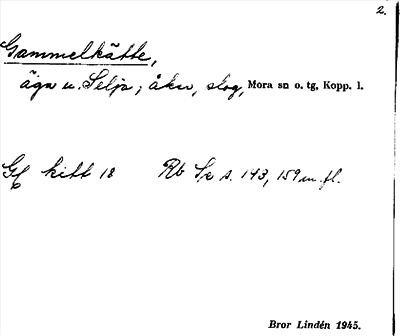 2.
Gammelkätte,
äga u. Selja; åker, slog, Mora sn o. tg, Kopp. l.
kitt 18 Rb s. 143, 159 m. fl.
Bror Lindén 1945.